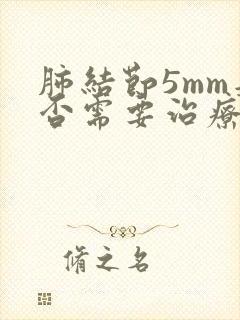 肺結節5mm是
否需要治療
脩之名